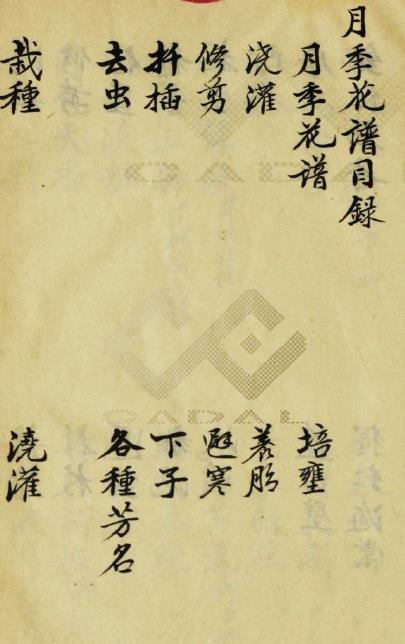 月季花譜目錄
月季花谱 培壅
浇灌 养胎
修剪 避寒
扦插 下子
去虫 各種芳名
栽種 澆灌
CADAL